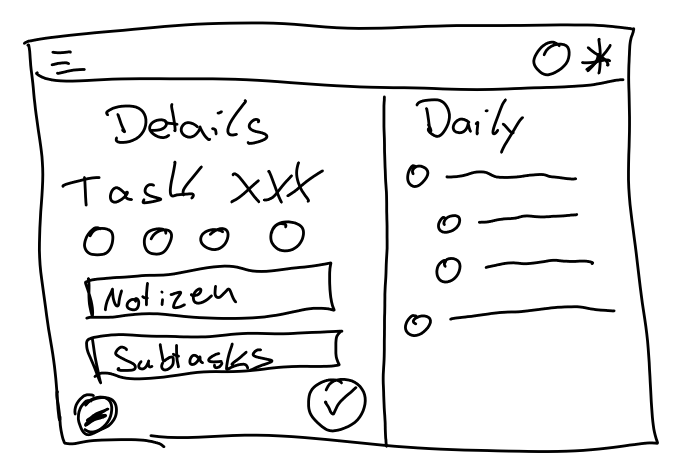 Details
Task XXX
Notizen
Subtasks
Daily